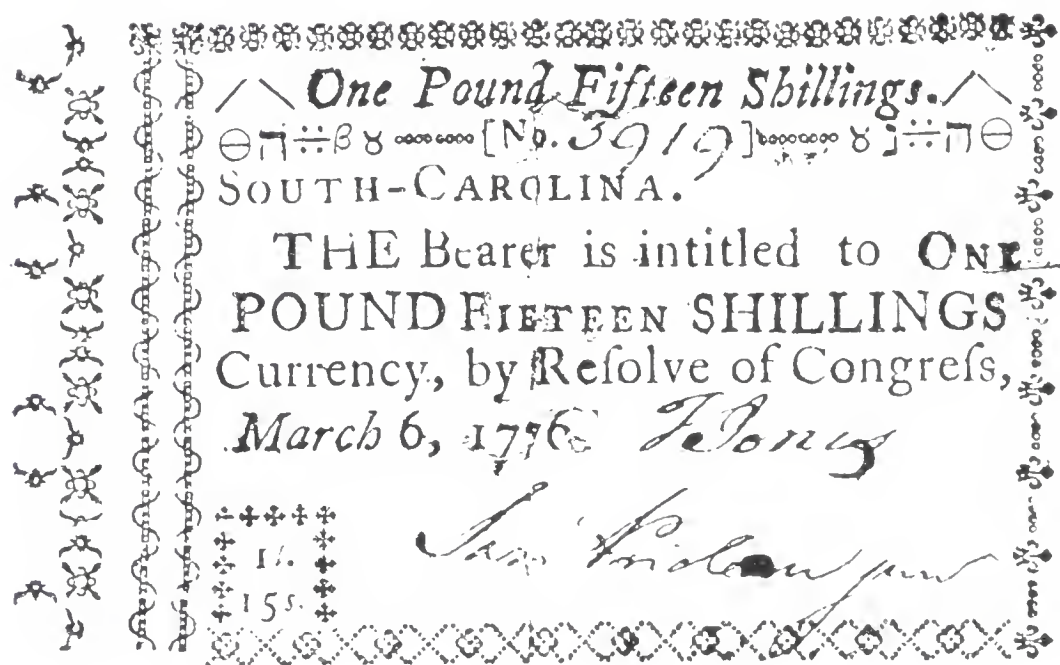 One Pound Fifteen Shillings.
[No. 5919]
SOUTH-CAROLINA.
THE Bearer is intitled to ONE
POUND FIFTEEN SHILLINGS
Currency, by Reſolve of Congreſs,
March 6, 1776.
1l.
15s.